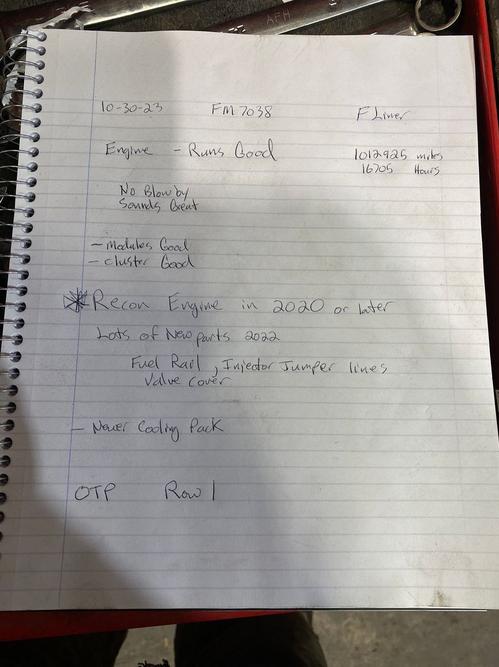 10-30-23 FM7038 FLiner
Engine - Runs Good 1012925 miles
16705 Hours
No Blowby
Sounds Great
- modules Good
- cluster Good
Recon Engine in 2020 or later
Lots of New parts 2022
Fuel Rail, Injector Jumper lines
Valve cover
- Newer Cooling Pack
OTP Row 1